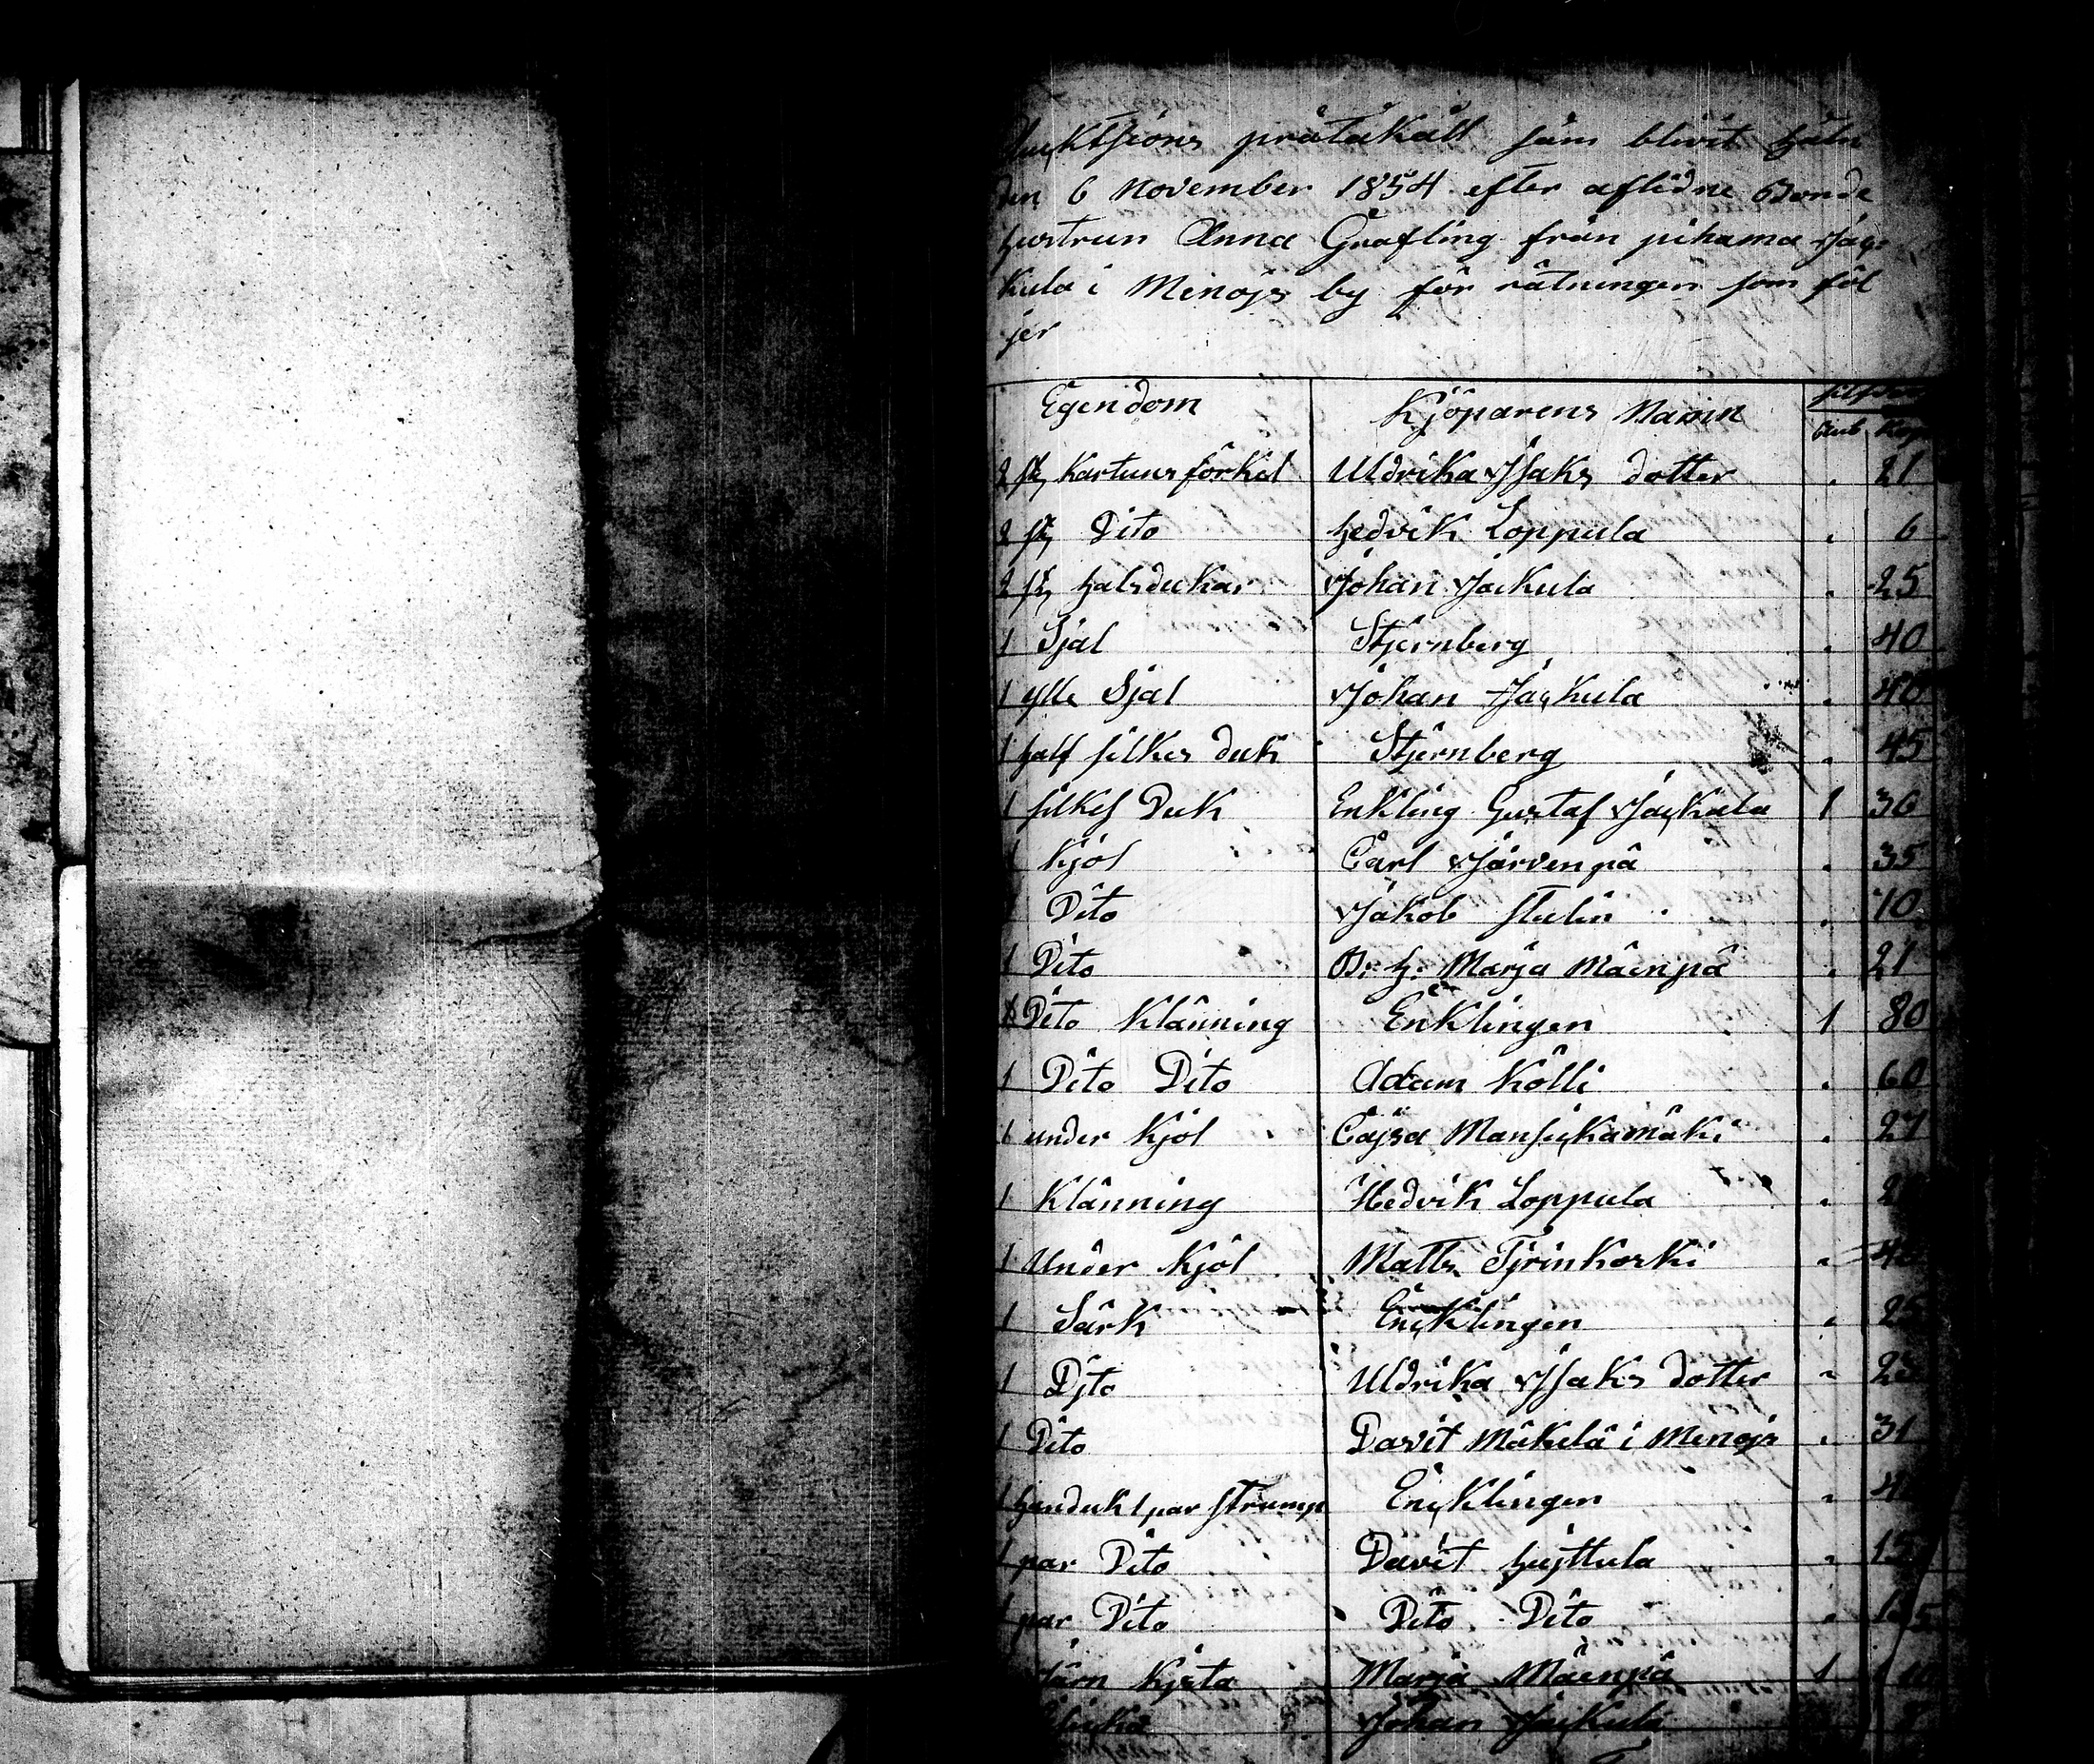 Aucktsions pråtakåll såm blivit håln
den 6 November 1854 efter aflidne Bonde
hustrun Anna Gräfling från pihama Jac
kula i Minojs by för rätningen som föl
jer
Egendom Kjöparens Namn
Rub Kop
2 st Kartuns förkel Uldrika Isaks dotter . 21
2 st Dito Hedvik Loppula . 6
2 st halsdukar Johan Jackula . 25
1 Sjal Stjernberg . 40
1 ylle Sjal Johan Jackula . 40
1 half silkes duk Stjernberg . 45
1 silkes Duk Enkling Gustaf Jackula 1 36
1 Kjol Carl Järvenpä . 35
Dito Jakob stulin . 10
1 Dito B. h. Marja Mäenpä . 21
Dito Klänning Enklingen 1 80
1 Dito Dito Adam Kölli . 60
1 under Kjol Cajsa Mansickamäki . 27
1 Klänning Hedvik Loppula .
1 Under Kjol Matts Tjrinkoski .
1 Särk Encklingen . 25
1 Djto Uldrika Isaks dotter .
1 Dito Davit Mäkelä i Menojs . 31
1 handuk 1 par strump Encklingen .
1 par Dito Davit hujttula . 15
1 par Dito Dito Dito .
Kjsta Marja Mäenpä 1
Johan Jackula